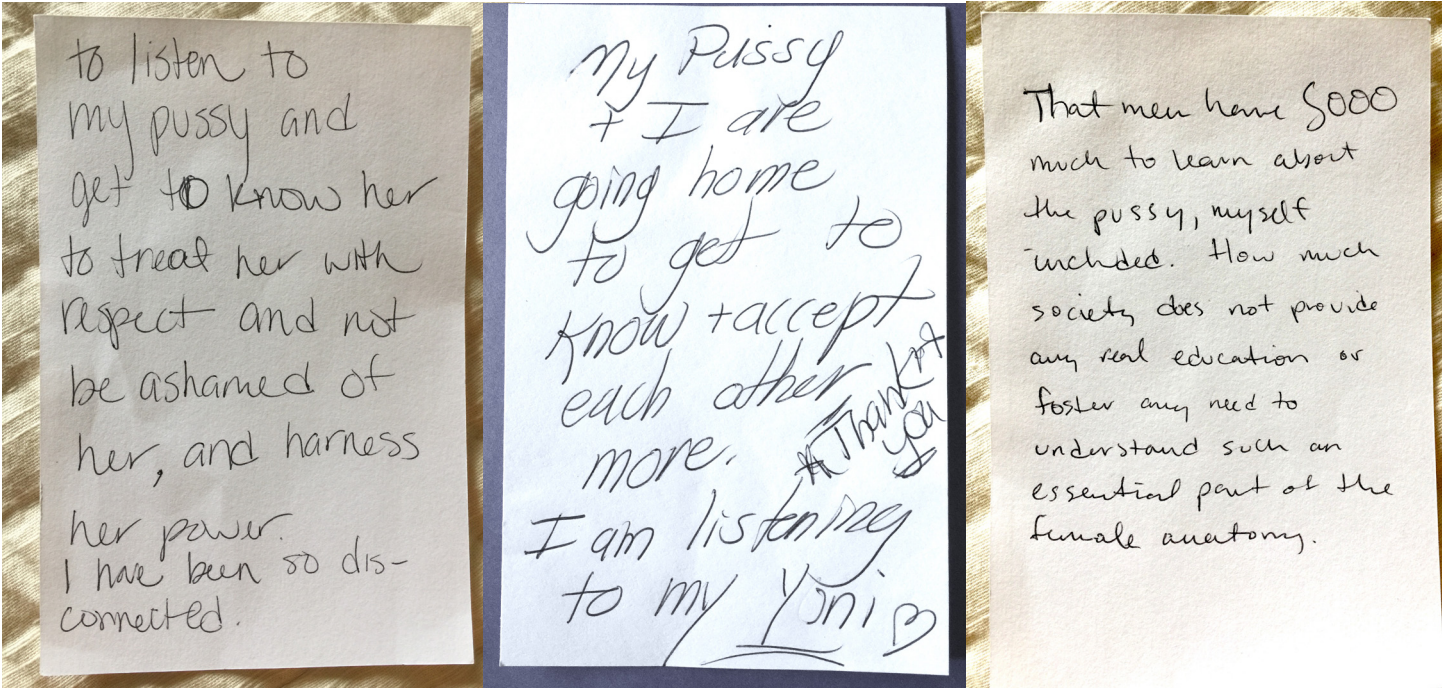 to listen to
my pussy and
get to know her
to treat her with
respect and not
be ashamed of
her, and harness
her power.
I have been so dis-
connected.
My Pussy
+ I are
going home
to get to
know + accept
each other
more.
Thank
you
I am listening
to my Yoni
That men have Sooo
much to learn about
the pussy, myself
included. How much
society does not provide
any real education or
foster any need to
understand such an
essential part of the
female anatomy.